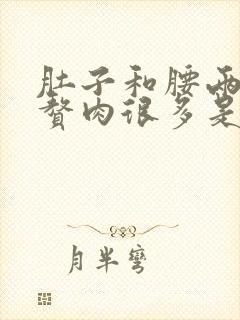 肚子和腰两
赘肉很多是
月半弯